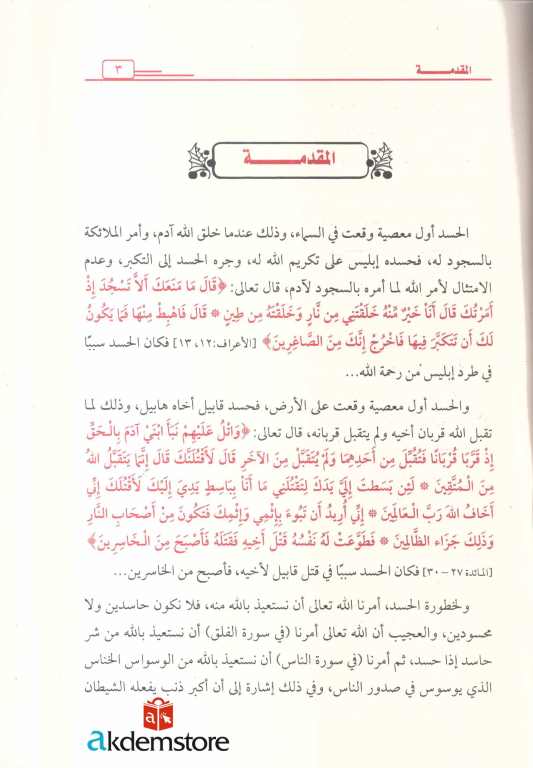 المقدمــــــة
٣
المقدمــــــة
الحسد أول معصية وقعت في السماء، وذلك عندما خلق الله آدم، وأمر الملائكة
بالسجود له، فحسده إبليس على تكريم الله له، وجره الحسد إلى التكبر، وعدم
الامتثال لأمر الله لما أمره بالسجود لآدم، قال تعالى: ﴿قَالَ مَا مَنَعَكَ أَلاَّ تَسْجُدَ إِذْ
أَمَرْتُكَ قَالَ أَنَا خَيْرٌ مِّنْهُ خَلَقْتَنِي مِن نَّارٍ وَخَلَقْتَهُ مِن طِينٍ * قَالَ فَاهْبِطْ مِنْهَا فَمَا يَكُونُ
لَكَ أَن تَتَكَبَّرَ فِيهَا فَاخْرُجْ إِنَّكَ مِنَ الصَّاغِرِينَ﴾ [الأعراف:١٢، ١٣] فكان الحسد سببًا
في طرد إبليس من رحمة الله...
والحسد أول معصية وقعت على الأرض، فحسد قابيل أخاه هابيل، وذلك لما
تقبل الله قربان أخيه ولم يتقبل قربانه، قال تعالى: ﴿وَاتْلُ عَلَيْهِمْ نَبَأَ ابْنَيْ آدَمَ بِالْحَقِّ
إِذْ قَرَّبَا قُرْبَانًا فَتُقُبِّلَ مِن أَحَدِهِمَا وَلَمْ يُتَقَبَّلْ مِنَ الآخَرِ قَالَ لَأَقْتُلَنَّكَ قَالَ إِنَّمَا يَتَقَبَّلُ اللهُ
مِنَ الْمُتَّقِينَ * لَئِن بَسَطتَ إِلَيَّ يَدَكَ لِتَقْتُلَنِي مَا أَنَا بِبَاسِطٍ يَدِيَ إِلَيْكَ لَأَقْتُلَكَ إِنِّي
أَخَافُ اللهَ رَبَّ الْعَالَمِينَ * إِنِّي أُرِيدُ أَن تَبُوءَ بِإِثْمِي وَإِثْمِكَ فَتَكُونَ مِنْ أَصْحَابِ النَّارِ
وَذَلِكَ جَزَاء الظَّالِمِينَ * فَطَوَّعَتْ لَهُ نَفْسُهُ قَتْلَ أَخِيهِ فَقَتَلَهُ فَأَصْبَحَ مِنَ الْخَاسِرِينَ﴾
[المائدة ٢٧ – ٣٠] فكان الحسد سببًا في قتل قابيل لأخيه، فأصبح من الخاسرين...
ولخطورة الحسد، أمرنا الله تعالى أن نستعيذ بالله منه، فلا نكون حاسدين ولا
محسودين، والعجيب أن الله تعالى أمرنا (في سورة الفلق) أن نستعيذ بالله من شر
حاسد إذا حسد، ثم أمرنا (في سورة الناس) أن نستعيذ بالله من الوسواس الخناس
الذي يوسوس في صدور الناس، وفي ذلك إشارة إلى أن أكبر ذنب يفعله الشيطان
akdemstore